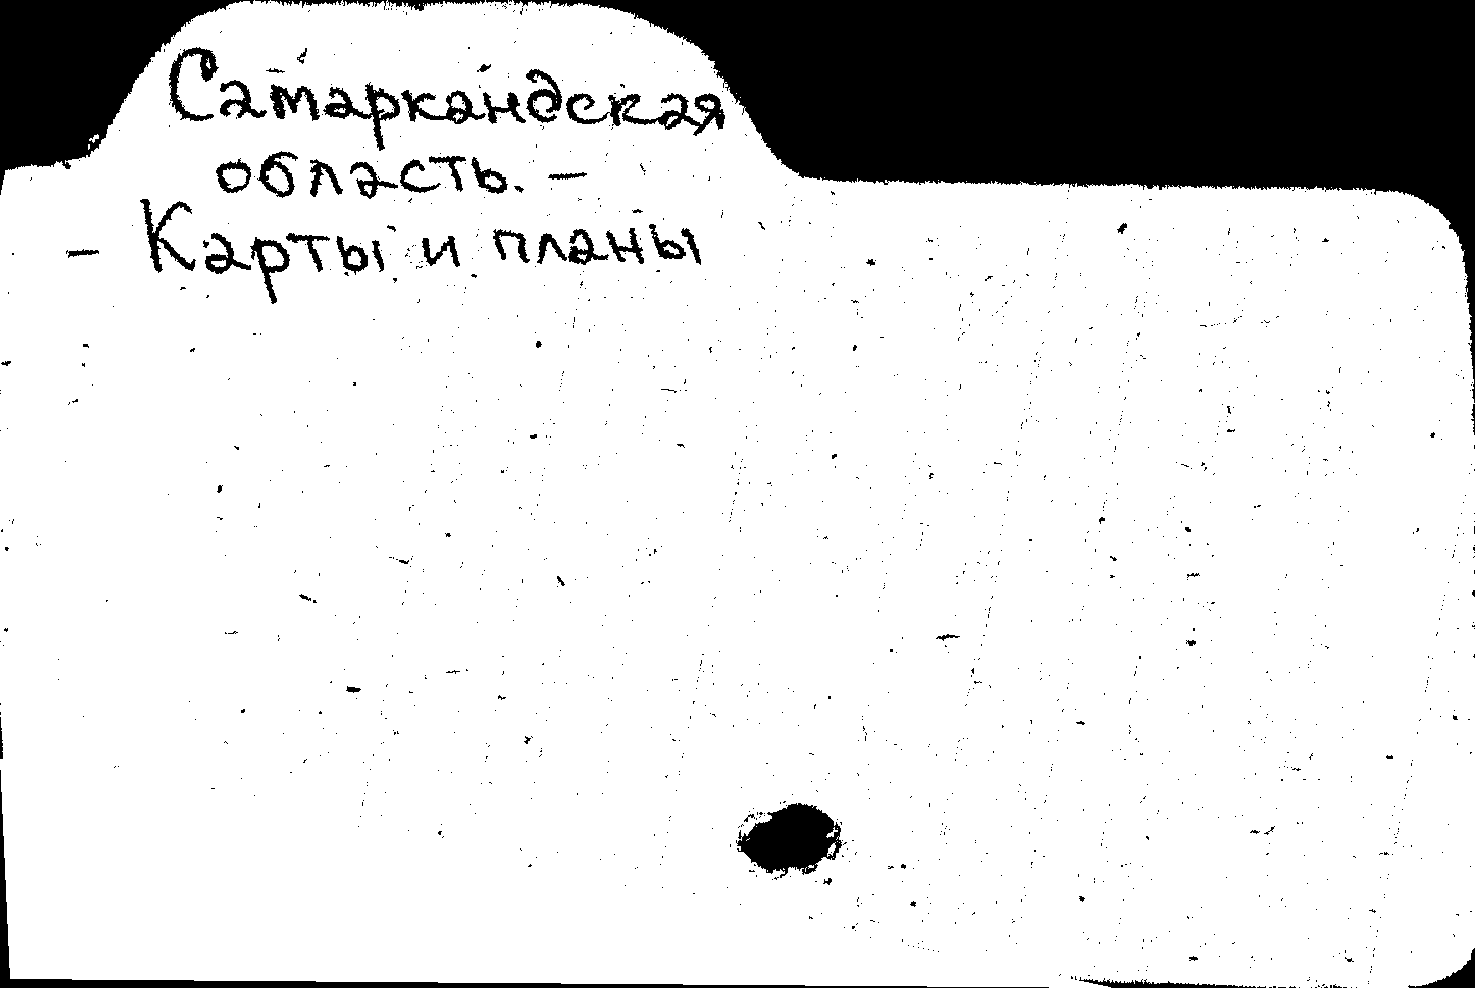 Самаркандская
область. –
– Карты и планы